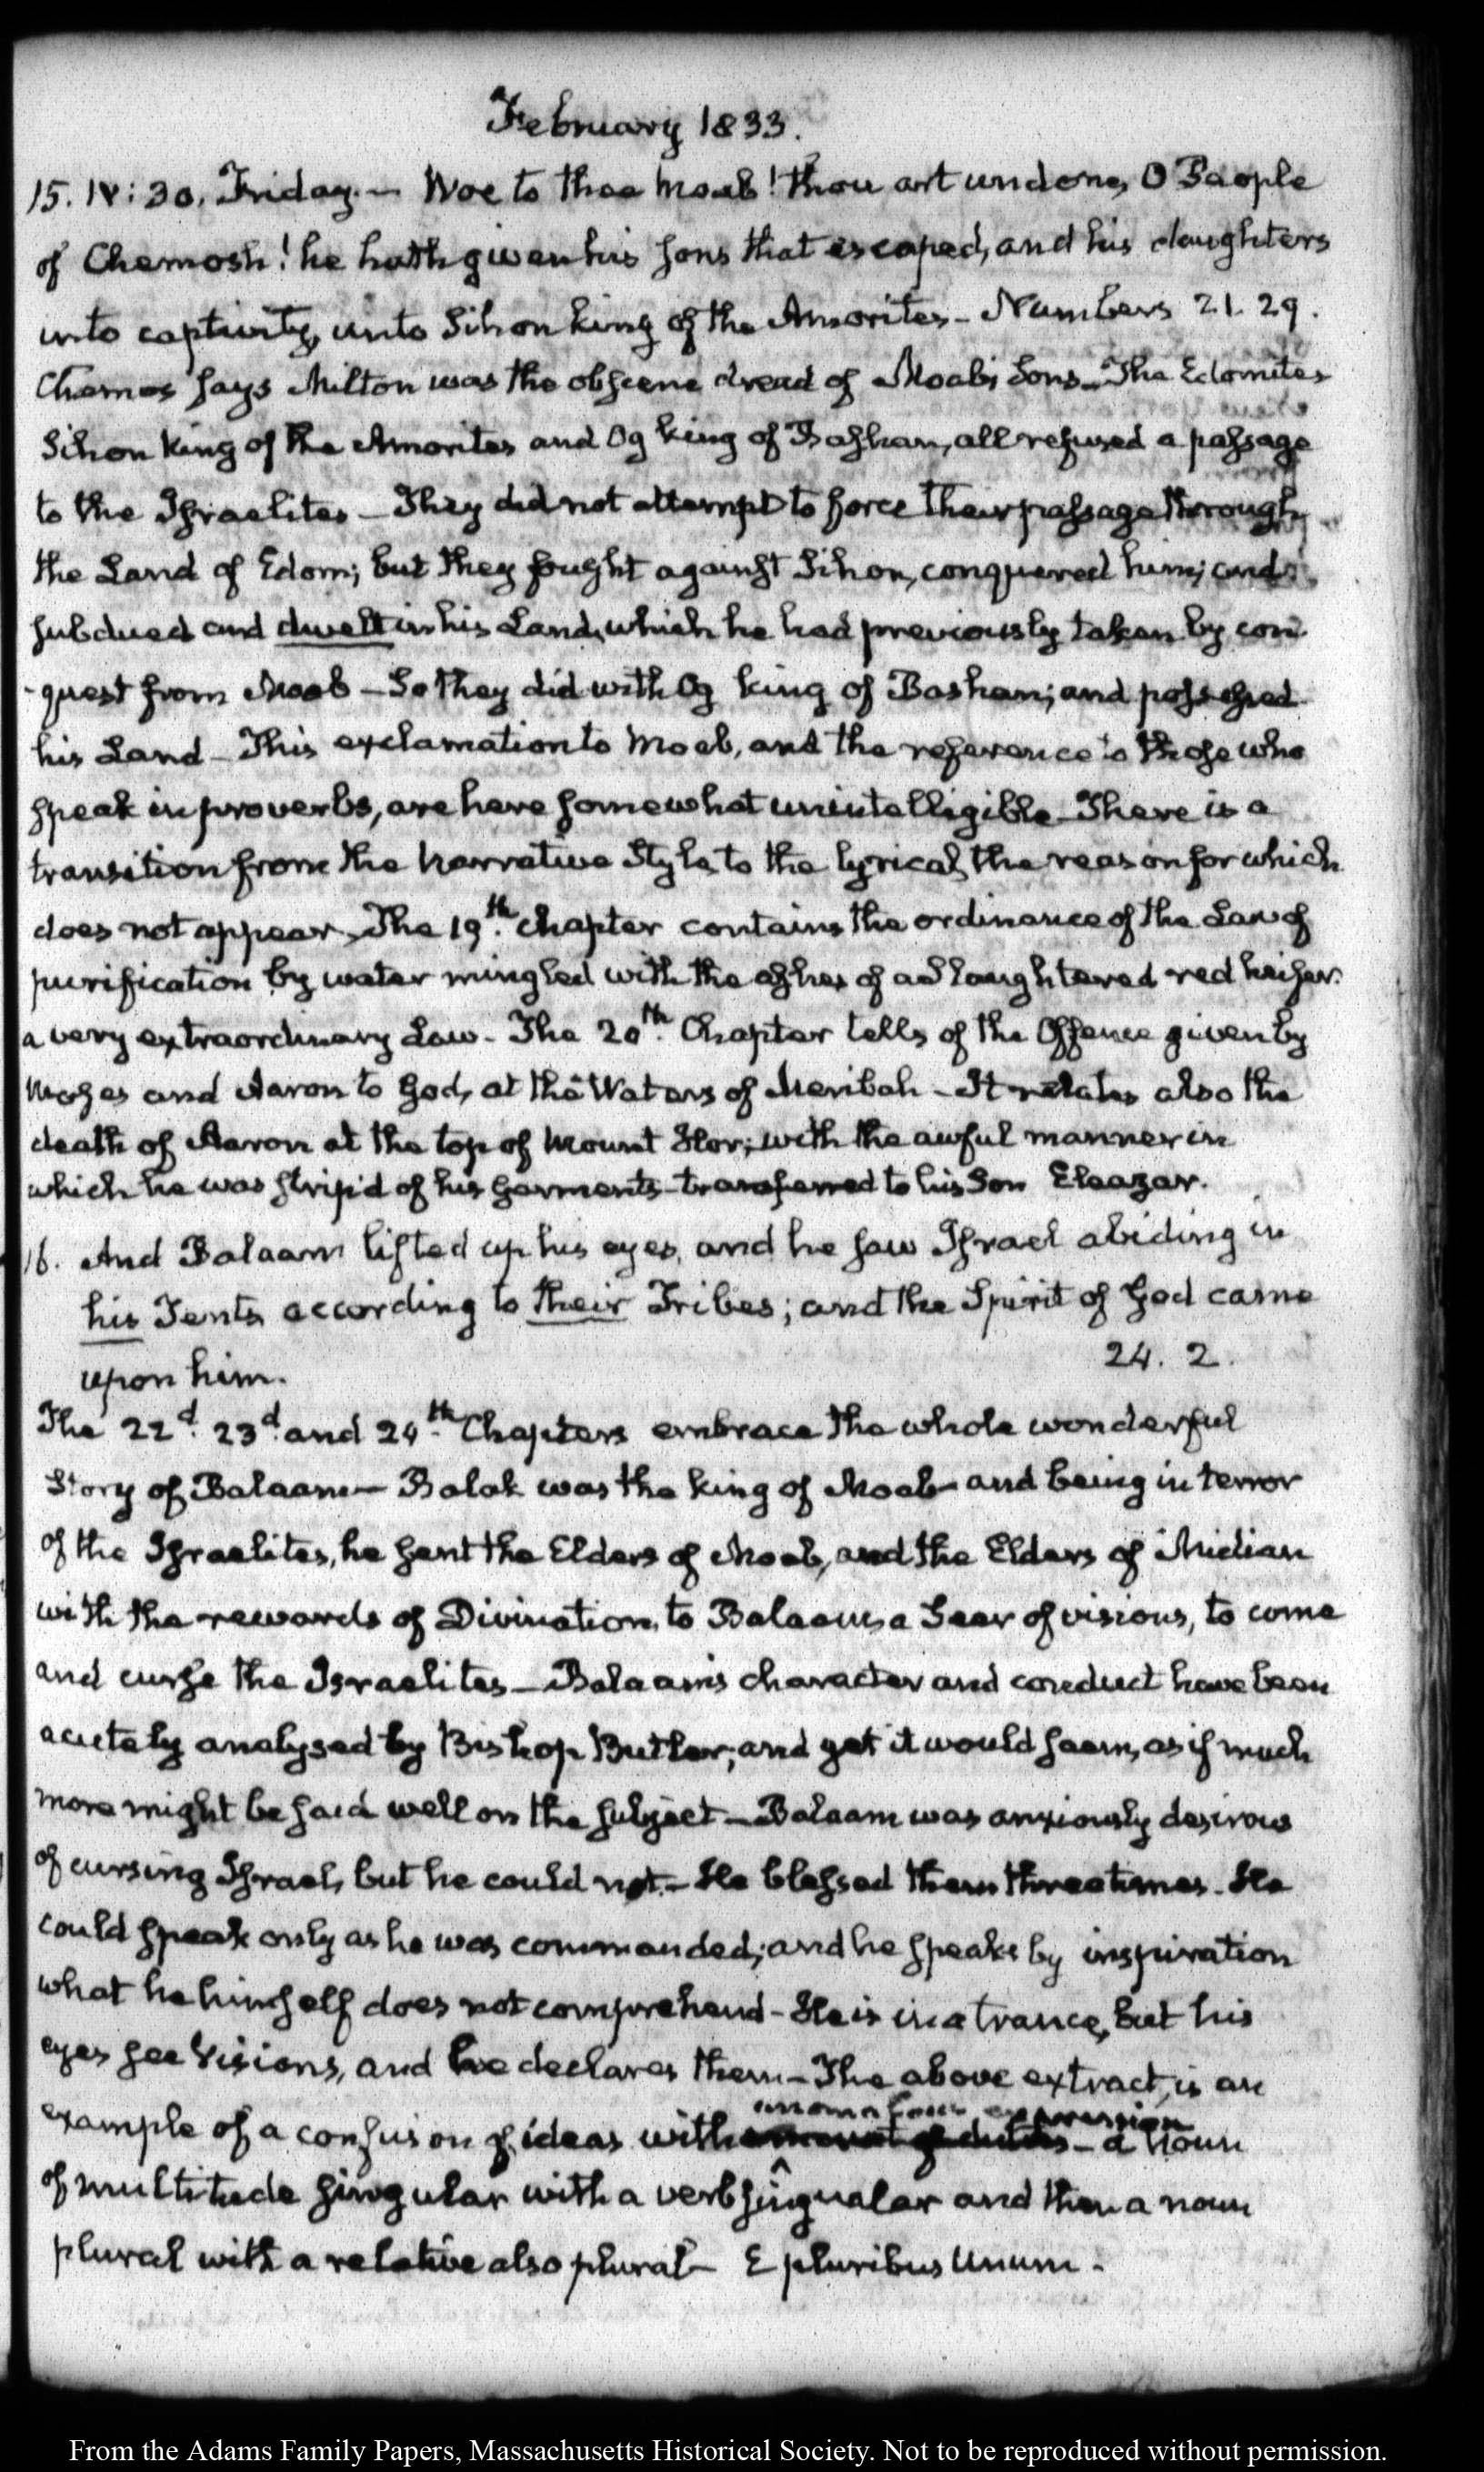 February 1833.
15. IV: 30. Friday.— Woe to thee Moab! thou art undone, O People
of Chemosh! he hath given his sons that escaped, and his daughters
into captivity, unto Sihon king of the Amorites — Numbers 21. 29.
Chemos says Milton was the obscene dread of Moabs Sons — The Edomites
Sihon king of the Amorites and Og king of Bashan, all refused a passage
to the Israelites — They did not attempt to force their passage through
the Land of Edom; but they fought against Sihon, conquered him; and
subdued and dwelt in his Land, which he had previously taken by con
-quest from Moab — So they did with Og king of Bashan; and possessed
his Land — This exclamation to Moab, and the reference to those who
speak in proverbs, are here somewhat unintelligible — There is a
transition from the narrative Style to the lyrical, the reason for which
does not appear — The 19th. Chapter contains the ordinance of the Law of
purification by water mingled with the ashes of a slaughtered red heifer.
a very extraordinary Law — The 20th. Chapter tells of the Offence given by
Moses and Aaron to God, at the Waters of Meribah — It relates also the
death of Aaron at the top of Mount Hor; with the awful manner in
which he was strip'd of his garments transferred to his Son Eleazar.
16. And Balaam lifted up his eyes, and he saw Israel abiding in
his Tents according to their Tribes; and the Spirit of God came
24. 2.
upon him.
The 22d. 23d. and 24th. Chapters embrace the whole wonderful
Story of Balaam — Balak was the king of Moab and being in terror
of the Israelites, he sent the Elders of Moab, and the Elders of Midian
with the rewards of Divination, to Balaam, a Seer of visions, to come
and curse the Israelites — Balaam's character and conduct have been
acutely analysed by Bishop Butler; and yet it would seem, as if much
more might be said well on the subject — Balaam was anxiously desirous
of cursing Israel, but he could not — He blessed them three times — He
could speak only as he was commanded; and he speaks by inspiration
what he himself does not comprehend — He is in a trance, but his
eyes see Visions, and he declares them — The above extract, is an
anomalous expression
example of a confusion of ideas with — a noun
of multitude singular with a verb singular and then a noun
plural with a relative also plural — E pluribus Unum.
From the Adams Family Papers, Massachusetts Historical Society. Not to be reproduced without permission.